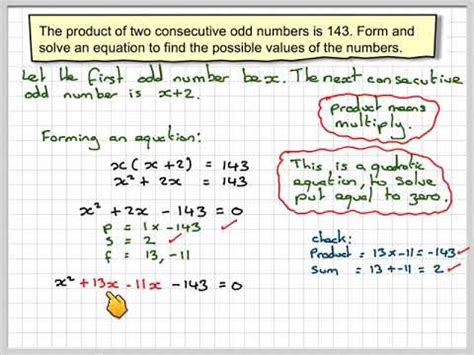 The product of two consecutive odd numbers is 143. Form and
solve an equation to find the possible values of the numbers.
Let the first odd number be x. The next consecutive
odd number is x+2.
product means
multiply.
Forming an equation:
x(x+2) = 143
x² + 2x = 143
This is a quadratic
equation, to solve
put equal to zero.
x² + 2x - 143 = 0
P = 1 x -143 ✓
S = 2 ✓
f = 13, -11
check:
Product = 13 x -11 = -143 ✓
Sum = 13 + -11 = 2 ✓
x² + 13x - 11x - 143 = 0